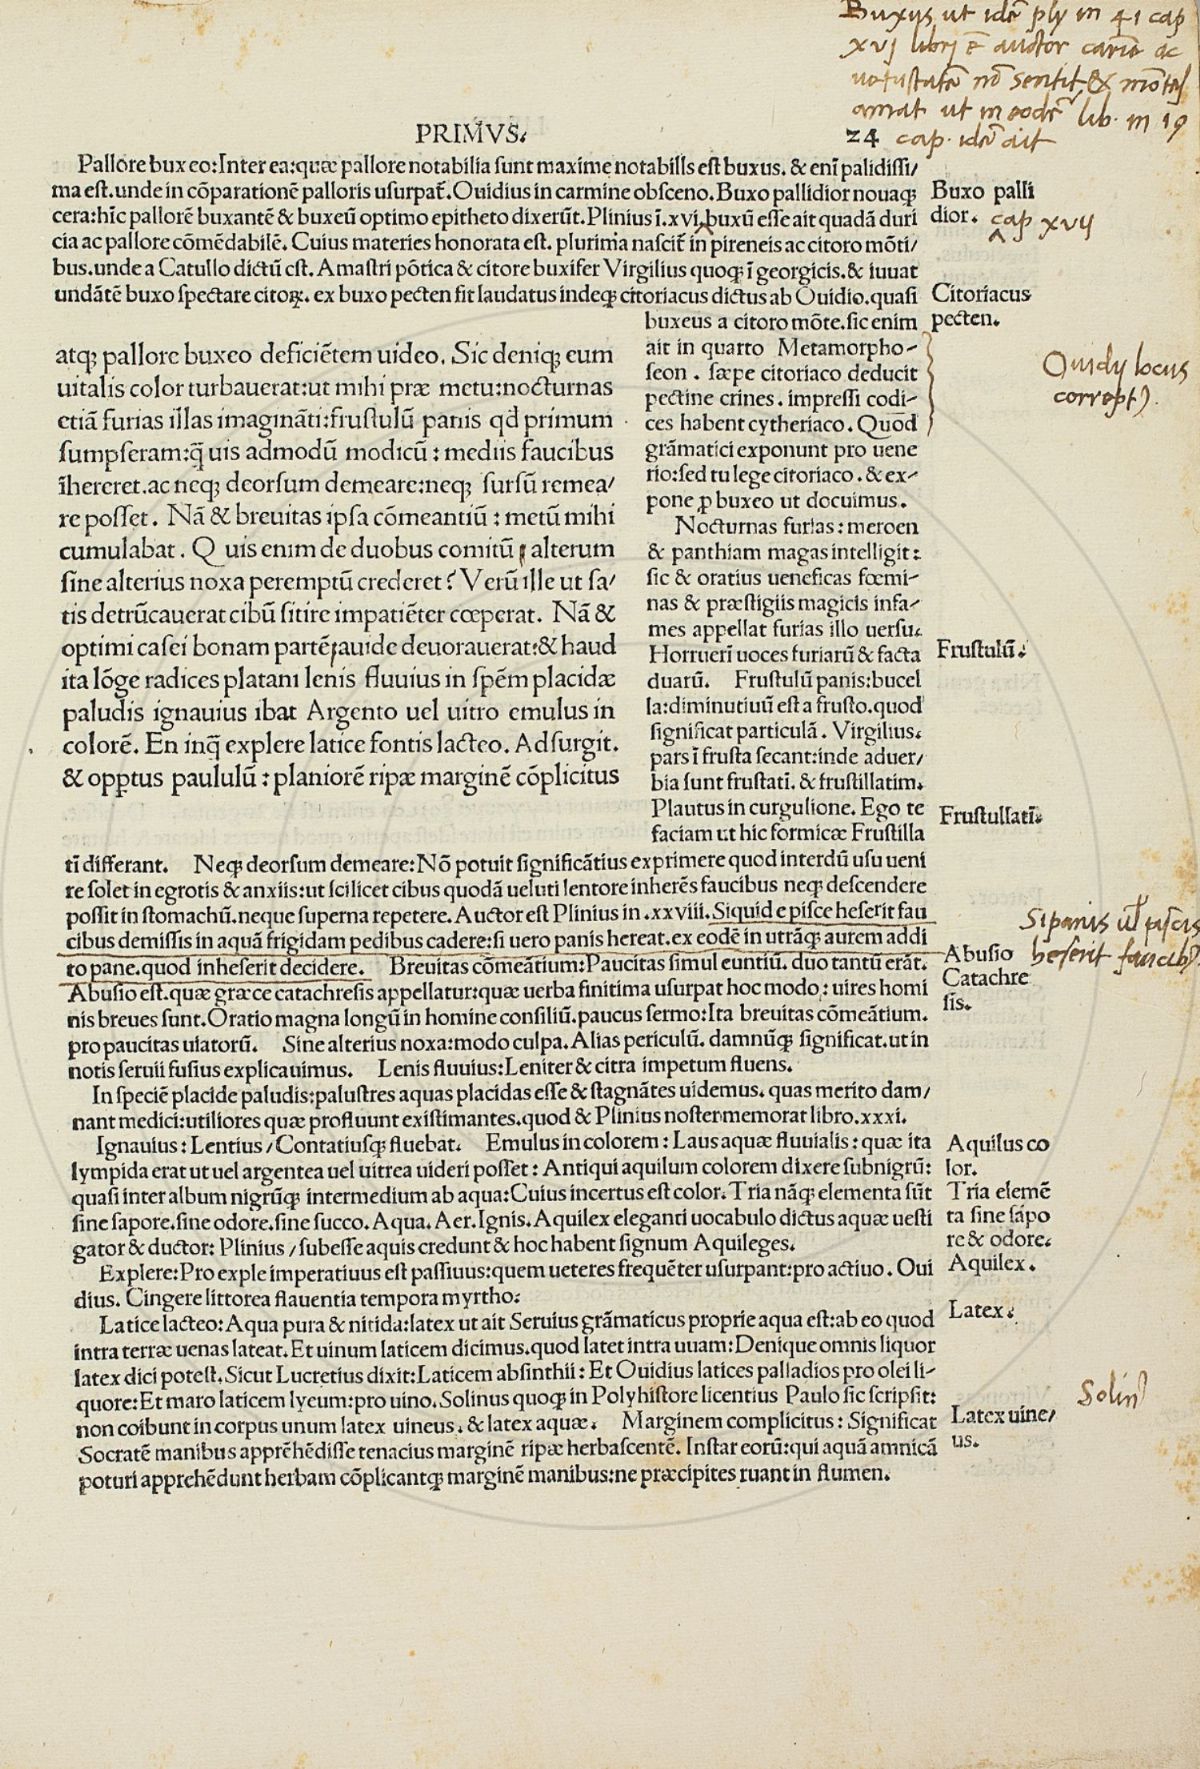 Buxus ut idē ply in 41 cap
xvj librj ē auctor cariē ac
uetustatē nō sentit & mōtes
amat ut in eodē lib. in 19
PRIMVS.
24 cap. idē ait
Pallore buxeo: Inter ea: quæ pallore notabilia sunt maxime notabilis est buxus. & enī palidissi/
ma est. unde in cōparationē palloris usurpat̄. Ouidius in carmine obsceno. Buxo pallidior nouaqꝫ
Buxo palli
cera: hīc pallorē buxantē & buxeū optimo epitheto dixerūt. Plinius ī. xvi. buxū esse ait quadā duri
dior.
cap xvij
cia ac pallore cōmēdabilē. Cuius materies honorata est. plurima nascit̄ in pireneis ac citoro mōti/
bus. unde a Catullo dictū est. Amastri pōtica & citore buxifer Virgilius quoqꝫ ī georgicis. & iuuat
undātē buxo spectare citoꝝ. ex buxo pecten fit laudatus indeqꝫ citoriacus dictus ab Ouidio. quasi
Citoriacus
buxeus a citoro mōte. sic enim
pecten.
ait in quarto Metamorpho-
seon . sæpe citoriaco deducit
pectine crines . impressi codi-
ces habent cytheriaco. Quod
grāmatici exponunt pro uene
rio: sed tu lege citoriaco . & ex-
pone ꝓ buxeo ut docuimus.
Ouidij locus
correpт)
Nocturnas furias: meroen
& panthiam magas intelligit:
sic & oratius ueneficas fœmi-
nas & præstigiis magicis infa-
mes appellat furias illo uersu.
Horruerī uoces furiarū & facta
duarū. Frustulū panis: bucel
Frustulū.
la: diminutiuū est a frusto. quod
significat particulā. Virgilius.
pars ī frusta secant: inde aduer/
bia sunt frustatī. & frustillatim.
Plautus in curgulione. Ego te
faciam ut hic formicæ Frustilla
Frustullatī.
atqꝫ pallore buxeo deficiētem uideo. Sic deniqꝫ eum
uitalis color turbauerat: ut mihi præ metu: nocturnas
etiā furias illas imagināti: frustulū panis qd̄ primum
sumpseram: q̄uis admodū modicū : mediis faucibus
īhereret. ac neqꝫ deorsum demeare: neqꝫ sursū remea/
re posset. Nā & breuitas ipsa cōmeantiū : metū mihi
cumulabat. Quis enim de duobus comitū alterum
sine alterius noxa peremptū crederet? Verū ille ut sa/
tis detrūcauerat cibū sitire impatiēter cœperat. Nā &
optimi casei bonam partē auide deuorauerat: & haud
ita lōge radices platani lenis fluuius in spēm placidæ
paludis ignauius ibat Argento uel uitro emulus in
colorē. En inq̄ explere latice fontis lacteo. Adsurgit.
& opp̱tus paululū : planiorē ripæ marginē cōplicitus
tī differant. Neqꝫ deorsum demeare: Nō potuit significātius exprimere quod interdū usu ueni
re solet in egrotis & anxiis: ut scilicet cibus quodā ueluti lentore inherēs faucibus neqꝫ descendere
possit in stomachū. neque superna repetere. Auctor est Plinius in. xxviii. Siquid e pisce heserit fau
Si panis ul̄ piscis
cibus demissis in aquā frigidam pedibus cadere: si uero panis hereat. ex eodē in utrāqꝫ aurem addi
heserit faucib)
to pane. quod inheserit decidere. Breuitas cōmeātium: Paucitas simul euntiū. duo tantū erāt.
Abusio
Abusio est. quæ græce catachresis appellatur: quæ uerba finitima usurpat hoc modo : uires homi
Catachre
nis breues sunt. Oratio magna longū in homine consiliū. paucus sermo: Ita breuitas cōmeātium.
sis.
pro paucitas uiatorū. Sine alterius noxa: modo culpa. Alias periculū. damnūqꝫ significat. ut in
notis seruii fusius explicauimus. Lenis fluuius: Leniter & citra impetum fluens.
In speciē placide paludis: palustres aquas placidas esse & stagnātes uidemus. quas merito dam/
nant medici: utiliores quæ profluunt existimantes. quod & Plinius noster memorat libro. xxxi.
Ignauius: Lentius / Contatiusqꝫ fluebat. Emulus in colorem : Laus aquæ fluuialis : quæ ita
Aquilus co
lympida erat ut uel argentea uel uitrea uideri posset : Antiqui aquilum colorem dixere subnigrū:
lor.
quasi inter album nigrūqꝫ intermedium ab aqua: Cuius incertus est color. Tria nāqꝫ elementa sūt
Tria elemē
sine sapore. sine odore. sine succo. Aqua. Aer. Ignis. Aquilex eleganti uocabulo dictus aquæ uesti
ta sine sapo
gator & ductor: Plinius / subesse aquis credunt & hoc habent signum Aquileges.
re & odore.
Explere: Pro exple imperatiuus est passiuus: quem ueteres frequēter usurpant: pro actiuo. Oui
Aquilex.
dius. Cingere littorea flauentia tempora myrtho:
Latice lacteo: Aqua pura & nitida: latex ut ait Seruius grāmaticus proprie aqua est: ab eo quod
Latex.
intra terræ uenas lateat. Et uinum laticem dicimus. quod latet intra uuam: Denique omnis liquor
latex dici potest. Sicut Lucretius dixit: Laticem absinthii : Et Ouidius latices palladios pro olei li-
quore: Et maro laticem lyeum: pro uino. Solinus quoqꝫ in Polyhistore licentius Paulo sic scripsit:
Solin)
non coibunt in corpus unum latex uineus. & latex aquæ. Marginem complicitus : Significat
Latex uine/
Socratē manibus apprēhēdisse tenacius marginē ripæ herbascentē. Instar eorū: qui aquā amnicā
us.
poturi apprehēdunt herbam cōplicantqꝫ marginē manibus: ne præcipites ruant in flumen.